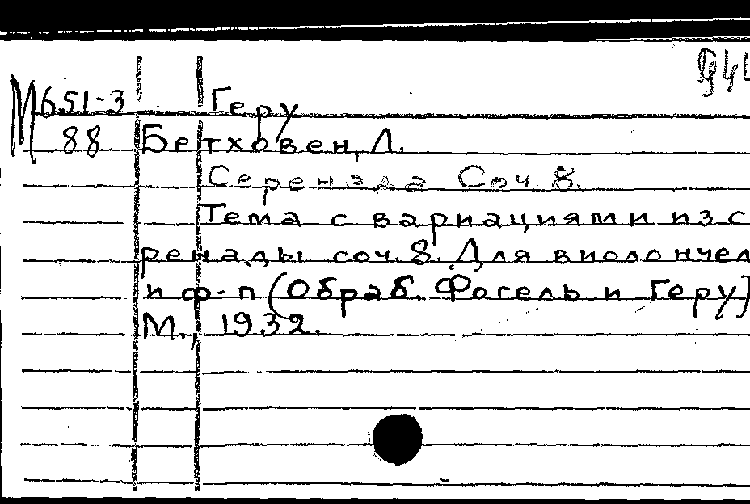 М651-3 Геру
88 Бетховен, Л.
Серенада Соч. 8.
Тема с вариациями из с
ренады соч. 8. Для виолончел
и ф-п (Обраб. Фогель и Геру)
М., 1932.